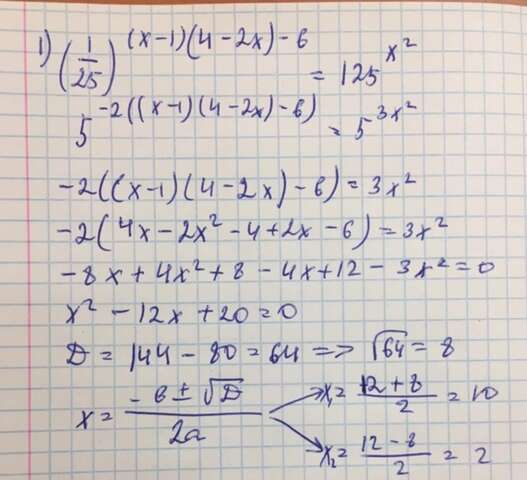 1) (1/25)^((x-1)(4-2x)-6) = 125^(x²)
5^(-2((x-1)(4-2x)-6)) = 5^(3x²)
-2((x-1)(4-2x)-6) = 3x²
-2(4x-2x²-4+2x-6) = 3x²
-8x+4x²+8-4x+12-3x²=0
x²-12x+20=0
D=144-80=64 => √64=8
x = (-b±√D)/(2a)
x₁=(12+8)/2=10
x₂=(12-8)/2=2